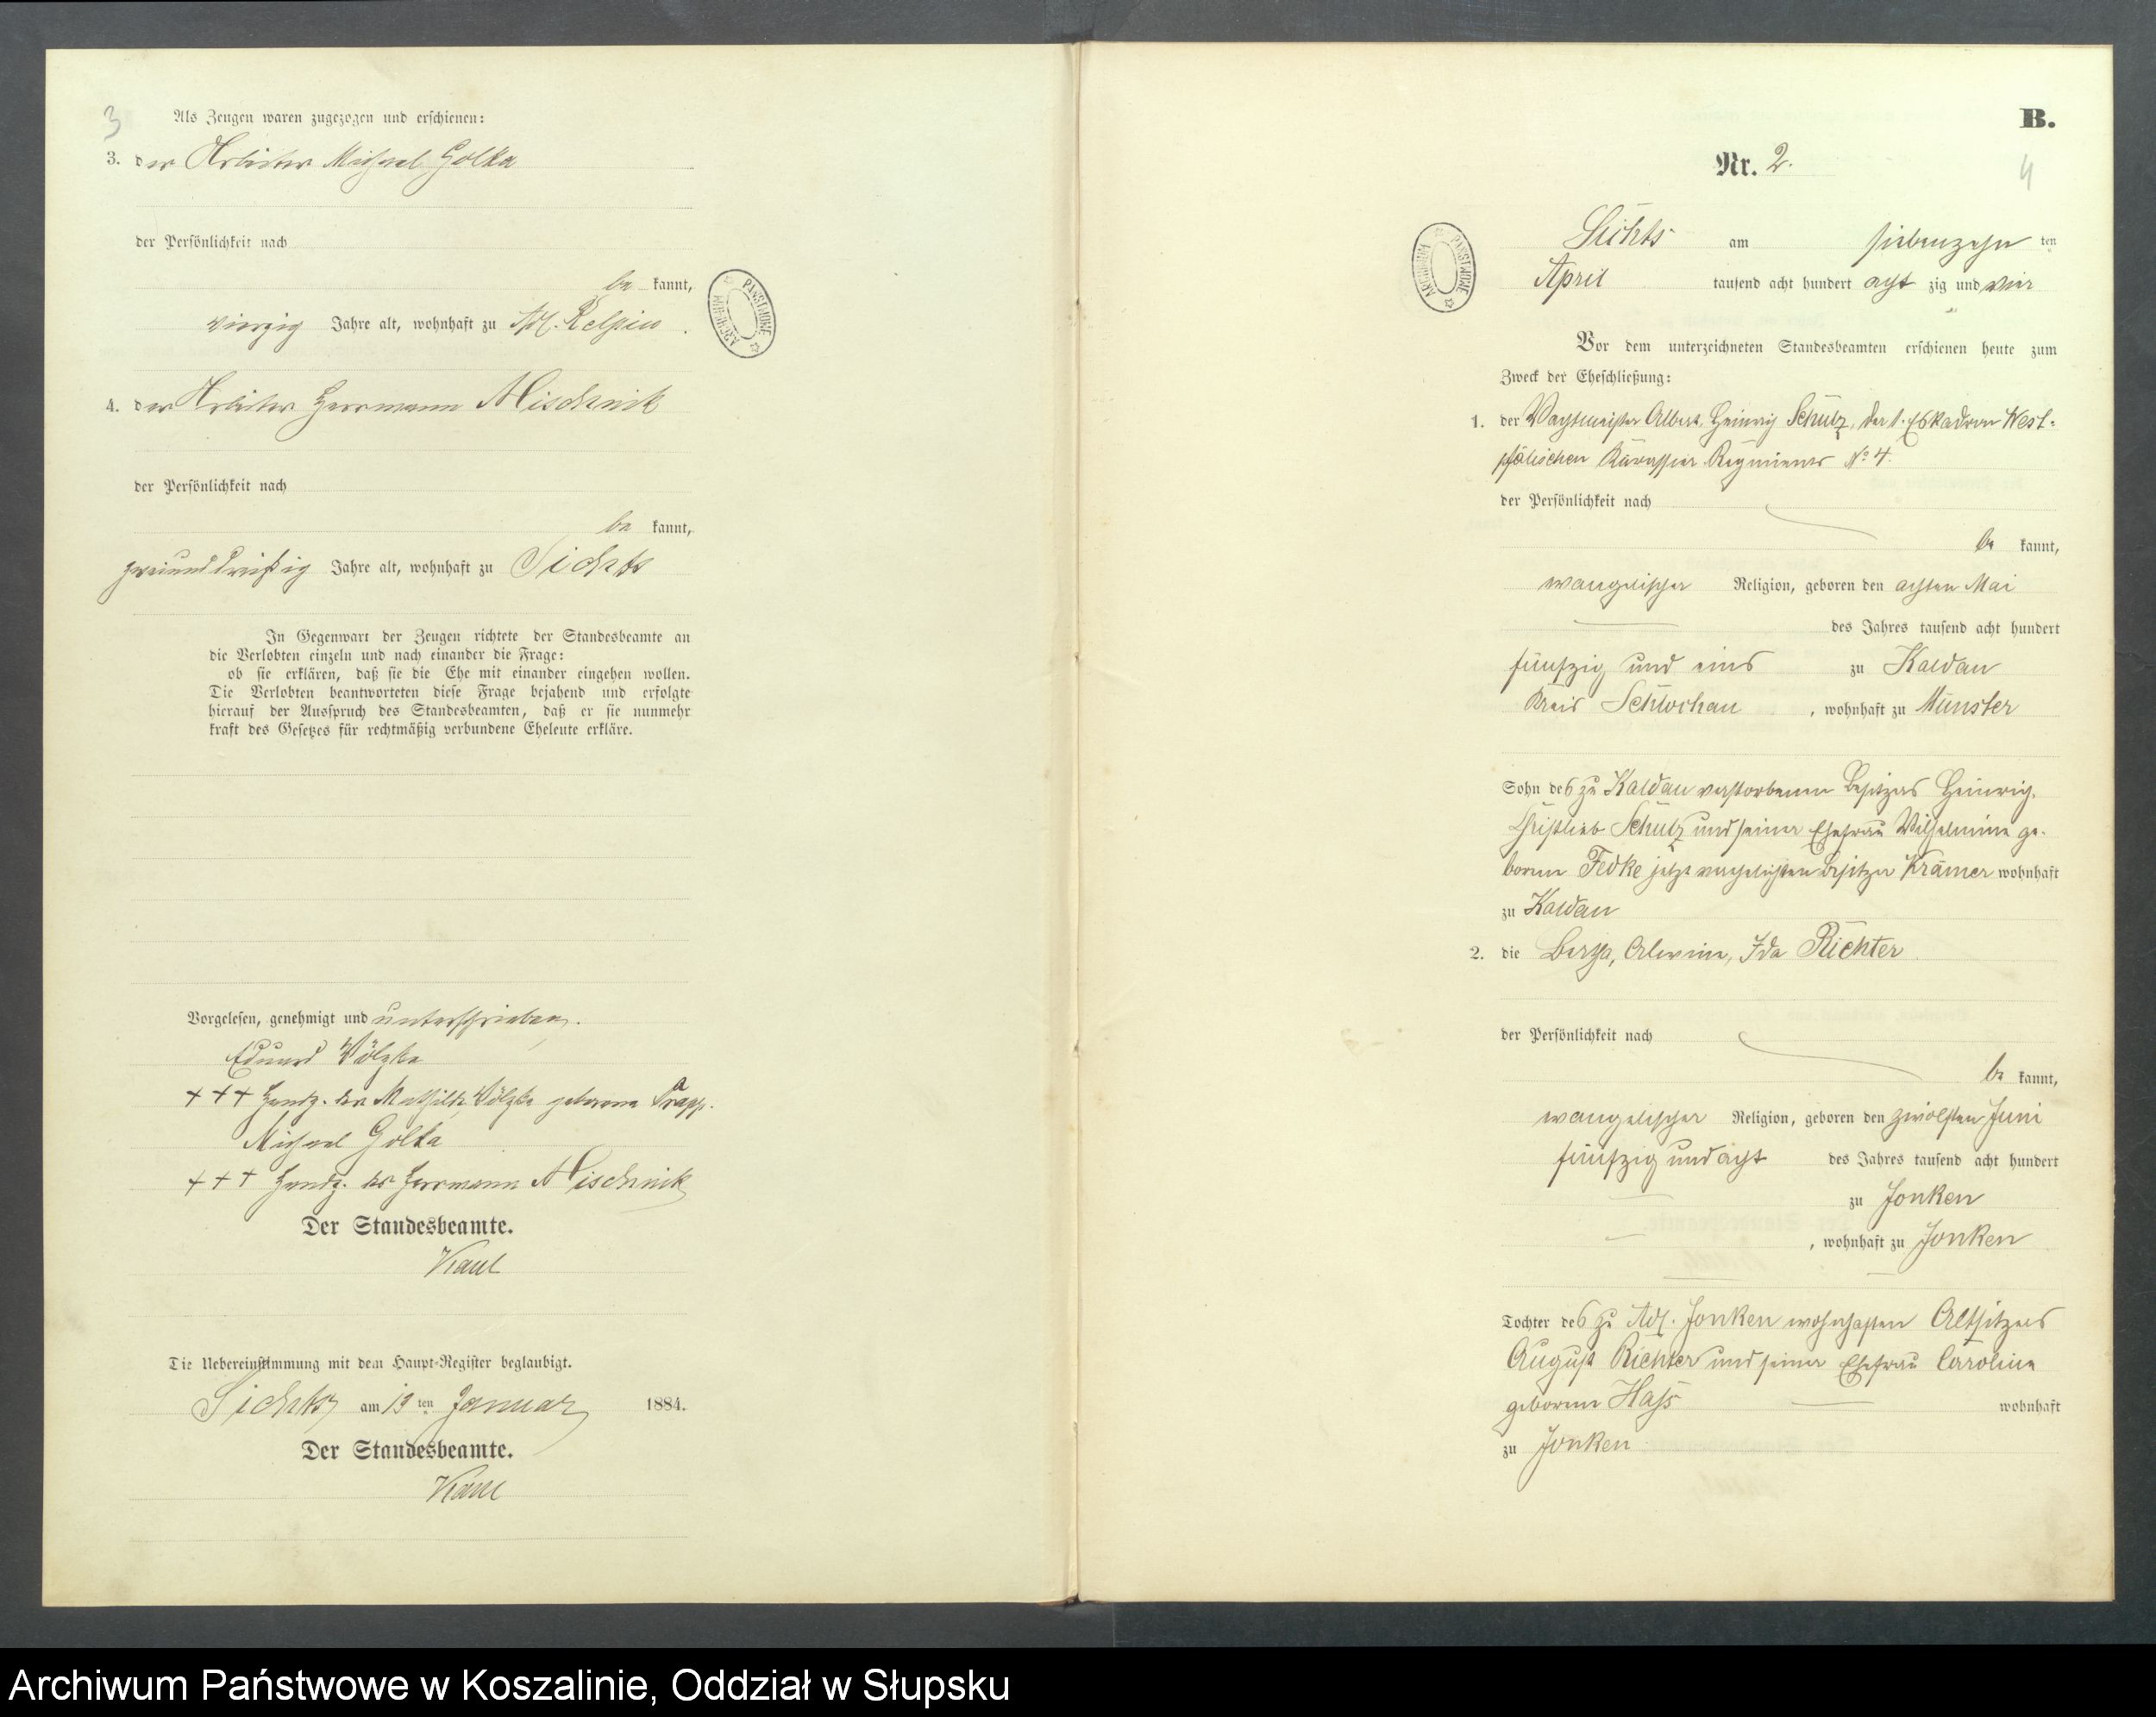 3
Als Zeugen waren zugezogen und erschienen:
3. der Arbeiter Michael Golka
der Persönlichkeit nach
be kannt,
vierzig Jahre alt, wohnhaft zu Adl. Relpin.
4. der Arbeiter Herrmann Mischnik
der Persönlichkeit nach
be kannt,
zweiunddreißig Jahre alt, wohnhaft zu Sichts
In Gegenwart der Zeugen richtete der Standesbeamte an
die Verlobten einzeln und nach einander die Frage:
ob sie erklären, daß sie die Ehe mit einander eingehen wollen.
Die Verlobten beantworteten diese Frage bejahend und erfolgte
hierauf der Ausspruch des Standesbeamten, daß er sie nunmehr
kraft des Gesetzes für rechtmäßig verbundene Eheleute erkläre.
Vorgelesen, genehmigt und unterschrieben.
Eduard Völzke
+++ Handz. der Mathilde Völzke geborene Papp.
Michael Golka
+++ Handz. des Herrmann Mischnik
Der Standesbeamte.
Kaul
Die Uebereinstimmung mit dem Haupt-Register beglaubigt.
Sichts am 19 ten Januar 1884.
Der Standesbeamte.
Kaul
B.
Nr. 2.
4
Sichts am siebenzehn ten
April tausend acht hundert acht zig und vier
Vor dem unterzeichneten Standesbeamten erschienen heute zum
Zweck der Eheschließung:
1. der Wachtmeister Albert, Heinrich Schulz, der 1. Eskadron West-
pfälischen Kürassier Regiments No 4.
der Persönlichkeit nach
be kannt,
evangelischer Religion, geboren den achten Mai
des Jahres tausend acht hundert
fünfzig und eins zu Kaldau
Kreis Schlochau, wohnhaft zu Münster
Sohn des zu Kaldau verstorbenen Besitzers Heinrich,
Christlieb Schulz und seiner Ehefrau Wilhelmine ge-
borene Fedke jetzt verehelichten Besitzer Krämer wohnhaft
zu Kaldau
2. die Bertha, Alwine, Ida Richter
der Persönlichkeit nach
be kannt,
evangelischer Religion, geboren den zwölften Juni
fünfzig und acht des Jahres tausend acht hundert
zu Jonken
, wohnhaft zu Jonken
Tochter des zu Adl. Jonken wohnhaften Altsitzers
August Richter und seiner Ehefrau Caroline
geborene Hass wohnhaft
zu Jonken
ARCHIWUM PAŃSTWOWE
ARCHIWUM PAŃSTWOWE
Archiwum Państwowe w Koszalinie, Oddział w Słupsku